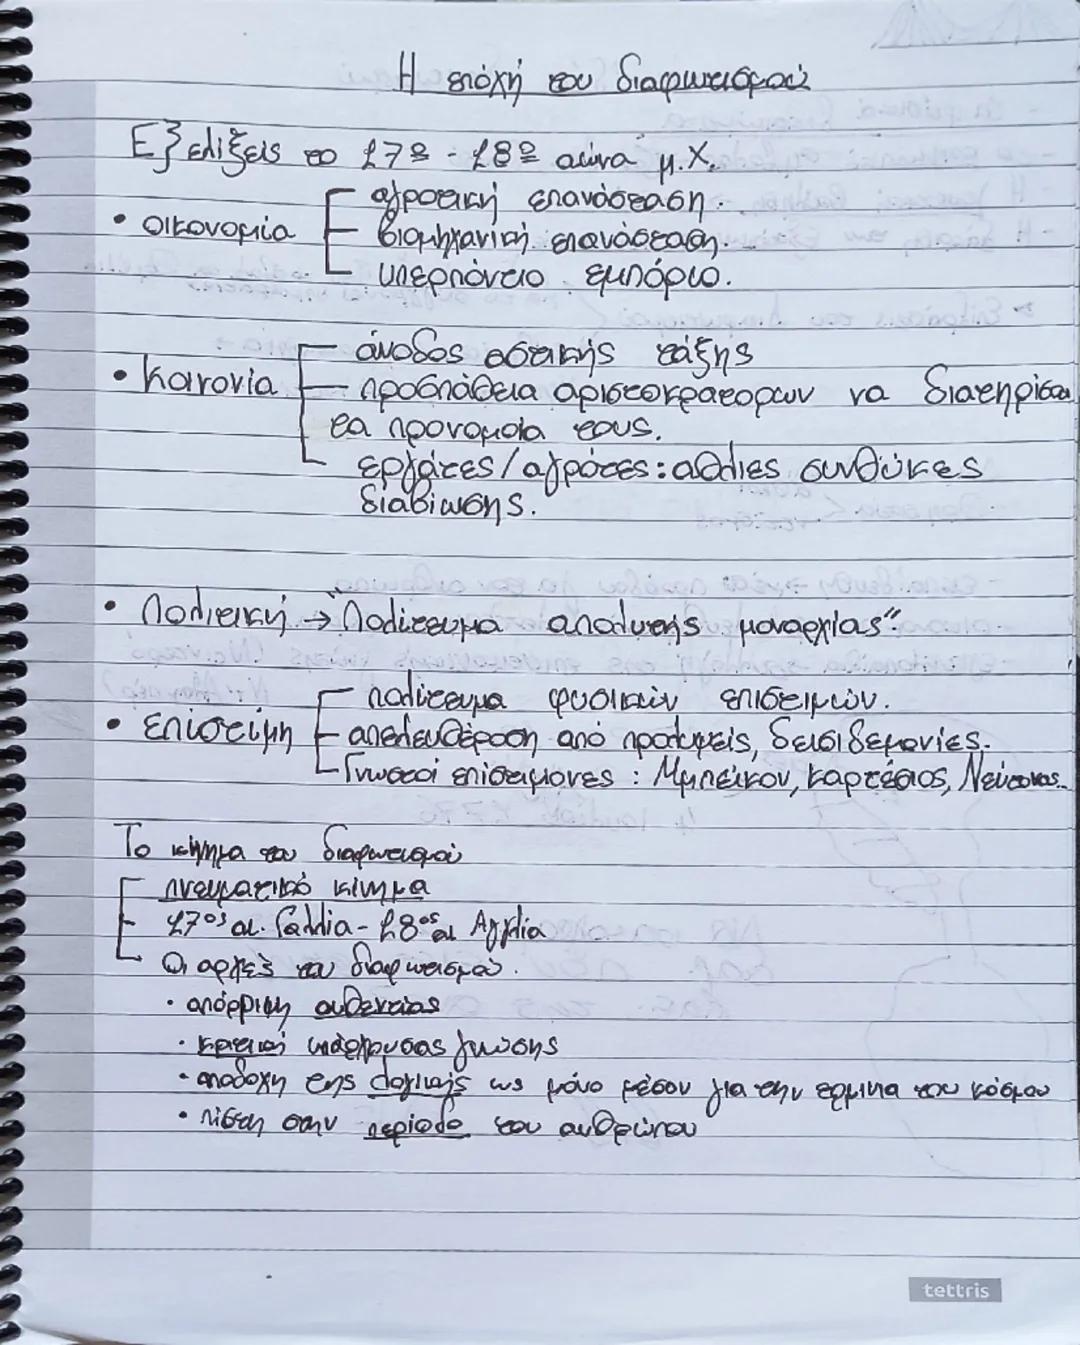 Η εποχή του διαφωτισμού
Εξελίξεις το 17º - 18º αιώνα μ.Χ.
αγροτική επανάσταση.
• οικονομία
βιομηχανική επανάσταση.
υπερπόντειο εμπόριο.
άνοδος αστικής τάξης
• Κοινονία
προσπάθεια αριστοκρατορων να διατηρίσου
τα προνομοία τους.
εργάτες/αγρότες: αθλιες συνθύκες
διαβίωσης.
• Πολιτική → "Πολίτευμα απολυτής μοναρχίας".
πολίτευμα φυσικών επιστιμών.
• επιστίμη
απελευθέρωση από προλυψείς, δεισιδεμονίες.
Γνωστοί επίστιμονες : Μμπέικον, Καρτέσιος, Νεύτονας..
Το κίνημα του διαφωτισμού
πνευματικό κίνημα
17ος αι. Γαλλία - 18ος αι Αγγλία
Οι αρχές του διαφωτισμού.
• απόρριψη αυθεντίας
• κριτική υπάρχουσας γνώσης
• αποδοχη της λογικής ως μόνο μέσον για την ερμινια του κόσμου
• πίστη στην περίοδο του ανθρώπου
tettris